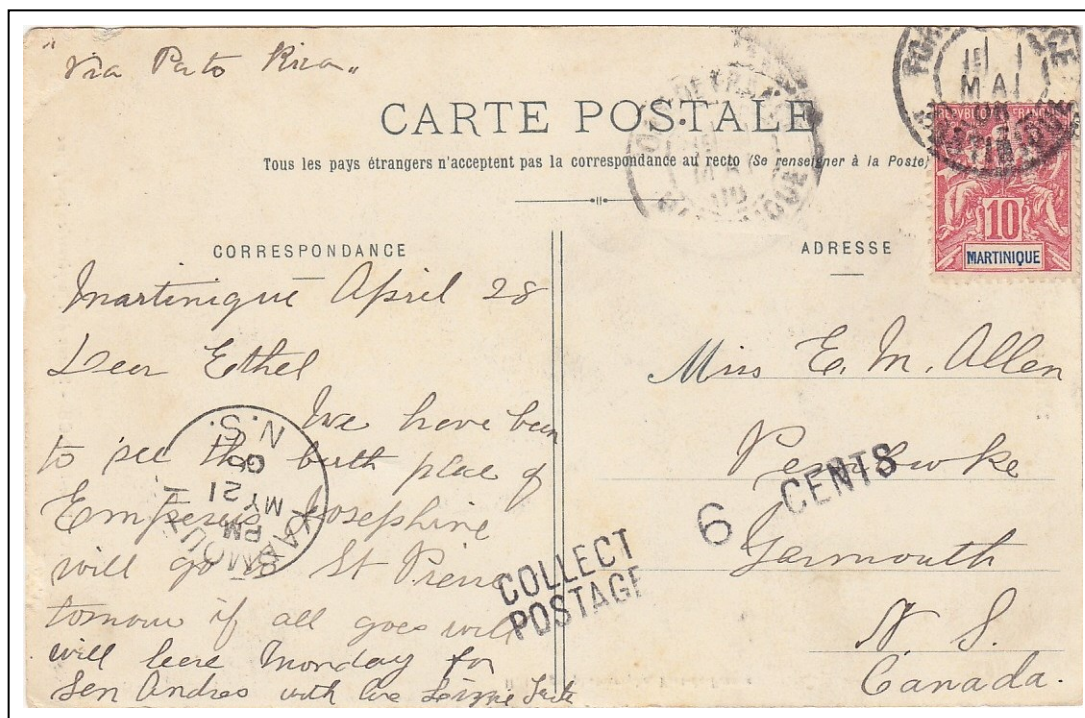 "Via Puto Rico"
CARTE POSTALE
Tous les pays étrangers n'acceptent pas la correspondance au recto (Se renseigner à la Poste)
FORT DE FRANCE
1
MAI
06
MARTINIQUE
1
MAI
REPUBLIQUE FRANÇAISE
10
MARTINIQUE
CORRESPONDANCE
Martinique April 28
Dear Ethel
We have been
to see the birth place of
Emperess Josephine
will go to St Pierre
tomorrow if all goes well
will leave Monday for
San Andres with love Lizzie
YARMOUTH
PM
MY 21
06
N.S.
COLLECT
POSTAGE
6 CENTS
ADRESSE
Miss E. M. Allen
Pembroke
Yarmouth
N. S.
Canada.